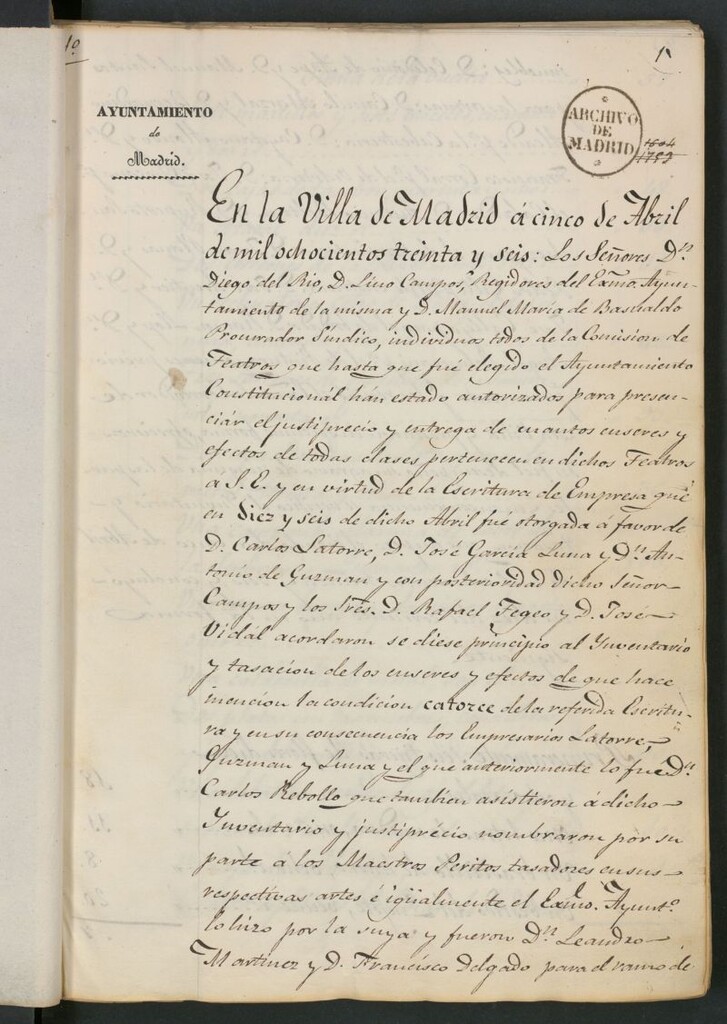 1º
1
AYUNTAMIENTO
de
Madrid.
ARCHIVO
DE
MADRID
En la Villa de Madrid á cinco de Abril
de mil ochocientos treinta y seis: Los Señores Dn
Diego del Rio, D. Lino Campos, Regidores del Exmo. Ayun-
tamiento de la misma y D. Manuel María de Basualdo
Procurador Síndico, individuos todos de la Comision de
Teatros que hasta que fué elegido el Ayuntamiento
Constitucionál hán estado autorizados para presen-
ciár el justiprecio y entrega de cuantos enseres y
efectos de todas clases pertenecen en dichos Teatros
a S. E. y en virtud de la Escritura de Empresa que
en Diez y seis de dicho Abril fué otorgada á favor de
D. Carlos Latorre, D. José García Luna y Dn. An-
tonio de Guzman y con posterioridad dicho Señor
Campos y los Sres. D. Rafael Fegeo y D. José
Vidál acordaron se diese principio al Ynventario
y tasacion de los enseres y efectos de que hace
mencion la condicion catorce de la referida Escritu-
ra y en su consecuencia los Empresarios Latorre,
Guzman y Luna y el que anteriormente lo fue Dn.
Carlos Rebollo que tambien asistieron á dicho
Ynventario y justiprécio nombraron por su
parte á los Maestros Peritos tasadores en sus
respectivas artes é igualmente el Exmo. Ayunto.
lo hizo por la suya y fueron Dn. Leandro
Martinez y D. Francisco Delgado para el ramo de